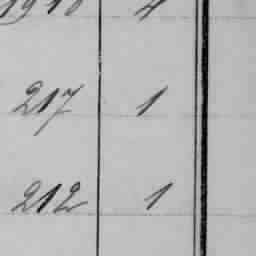 217 1
212 1